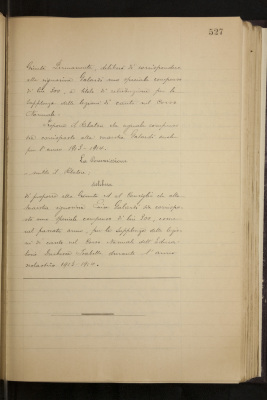 527
Giunta Permanente, deliberò di corrispondere
alla signorina Galeotti uno speciale compenso
di L. 200, a titolo di retribuzione per la
supplenza delle lezioni di canto nel corso
Normale.
Propone il Relatore che uguale compenso
sia corrisposto alla maestra Galeotti anche
per l'anno 1913-1914.
La Commissione
udito il Relatore,
delibera
di proporre alla Giunta ed al Consiglio che alla
maestra signorina Galeotti sia corrisposto
uno speciale compenso di lire 200, come
nel passato anno, per la supplenza delle lezioni
di canto nel Corso Normale dell'Educatorio
durante l'anno
scolastico 1913-1914.